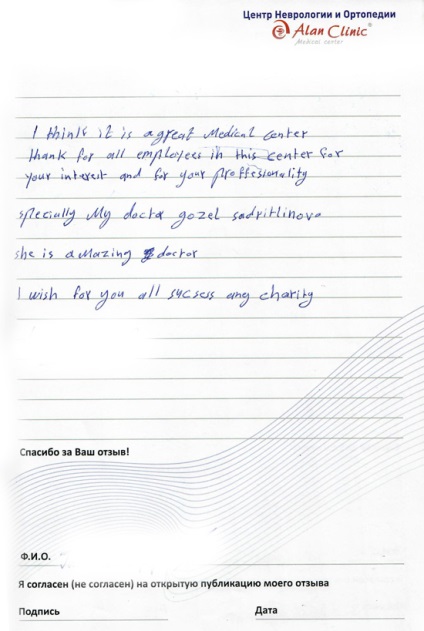 Центр Неврологии и Ортопедии
Alan Clinic®
Medical center
I think it is a great Medical Center
thank for all employees in this center for
your interest and for your proffesionality
specially My doctor gozel sadritlinova
she is aMazing doctor
I wish for you all sucsess any charity
Спасибо за Ваш отзыв!
Ф.И.О.
Я согласен (не согласен) на открытую публикацию моего отзыва
Подпись Дата